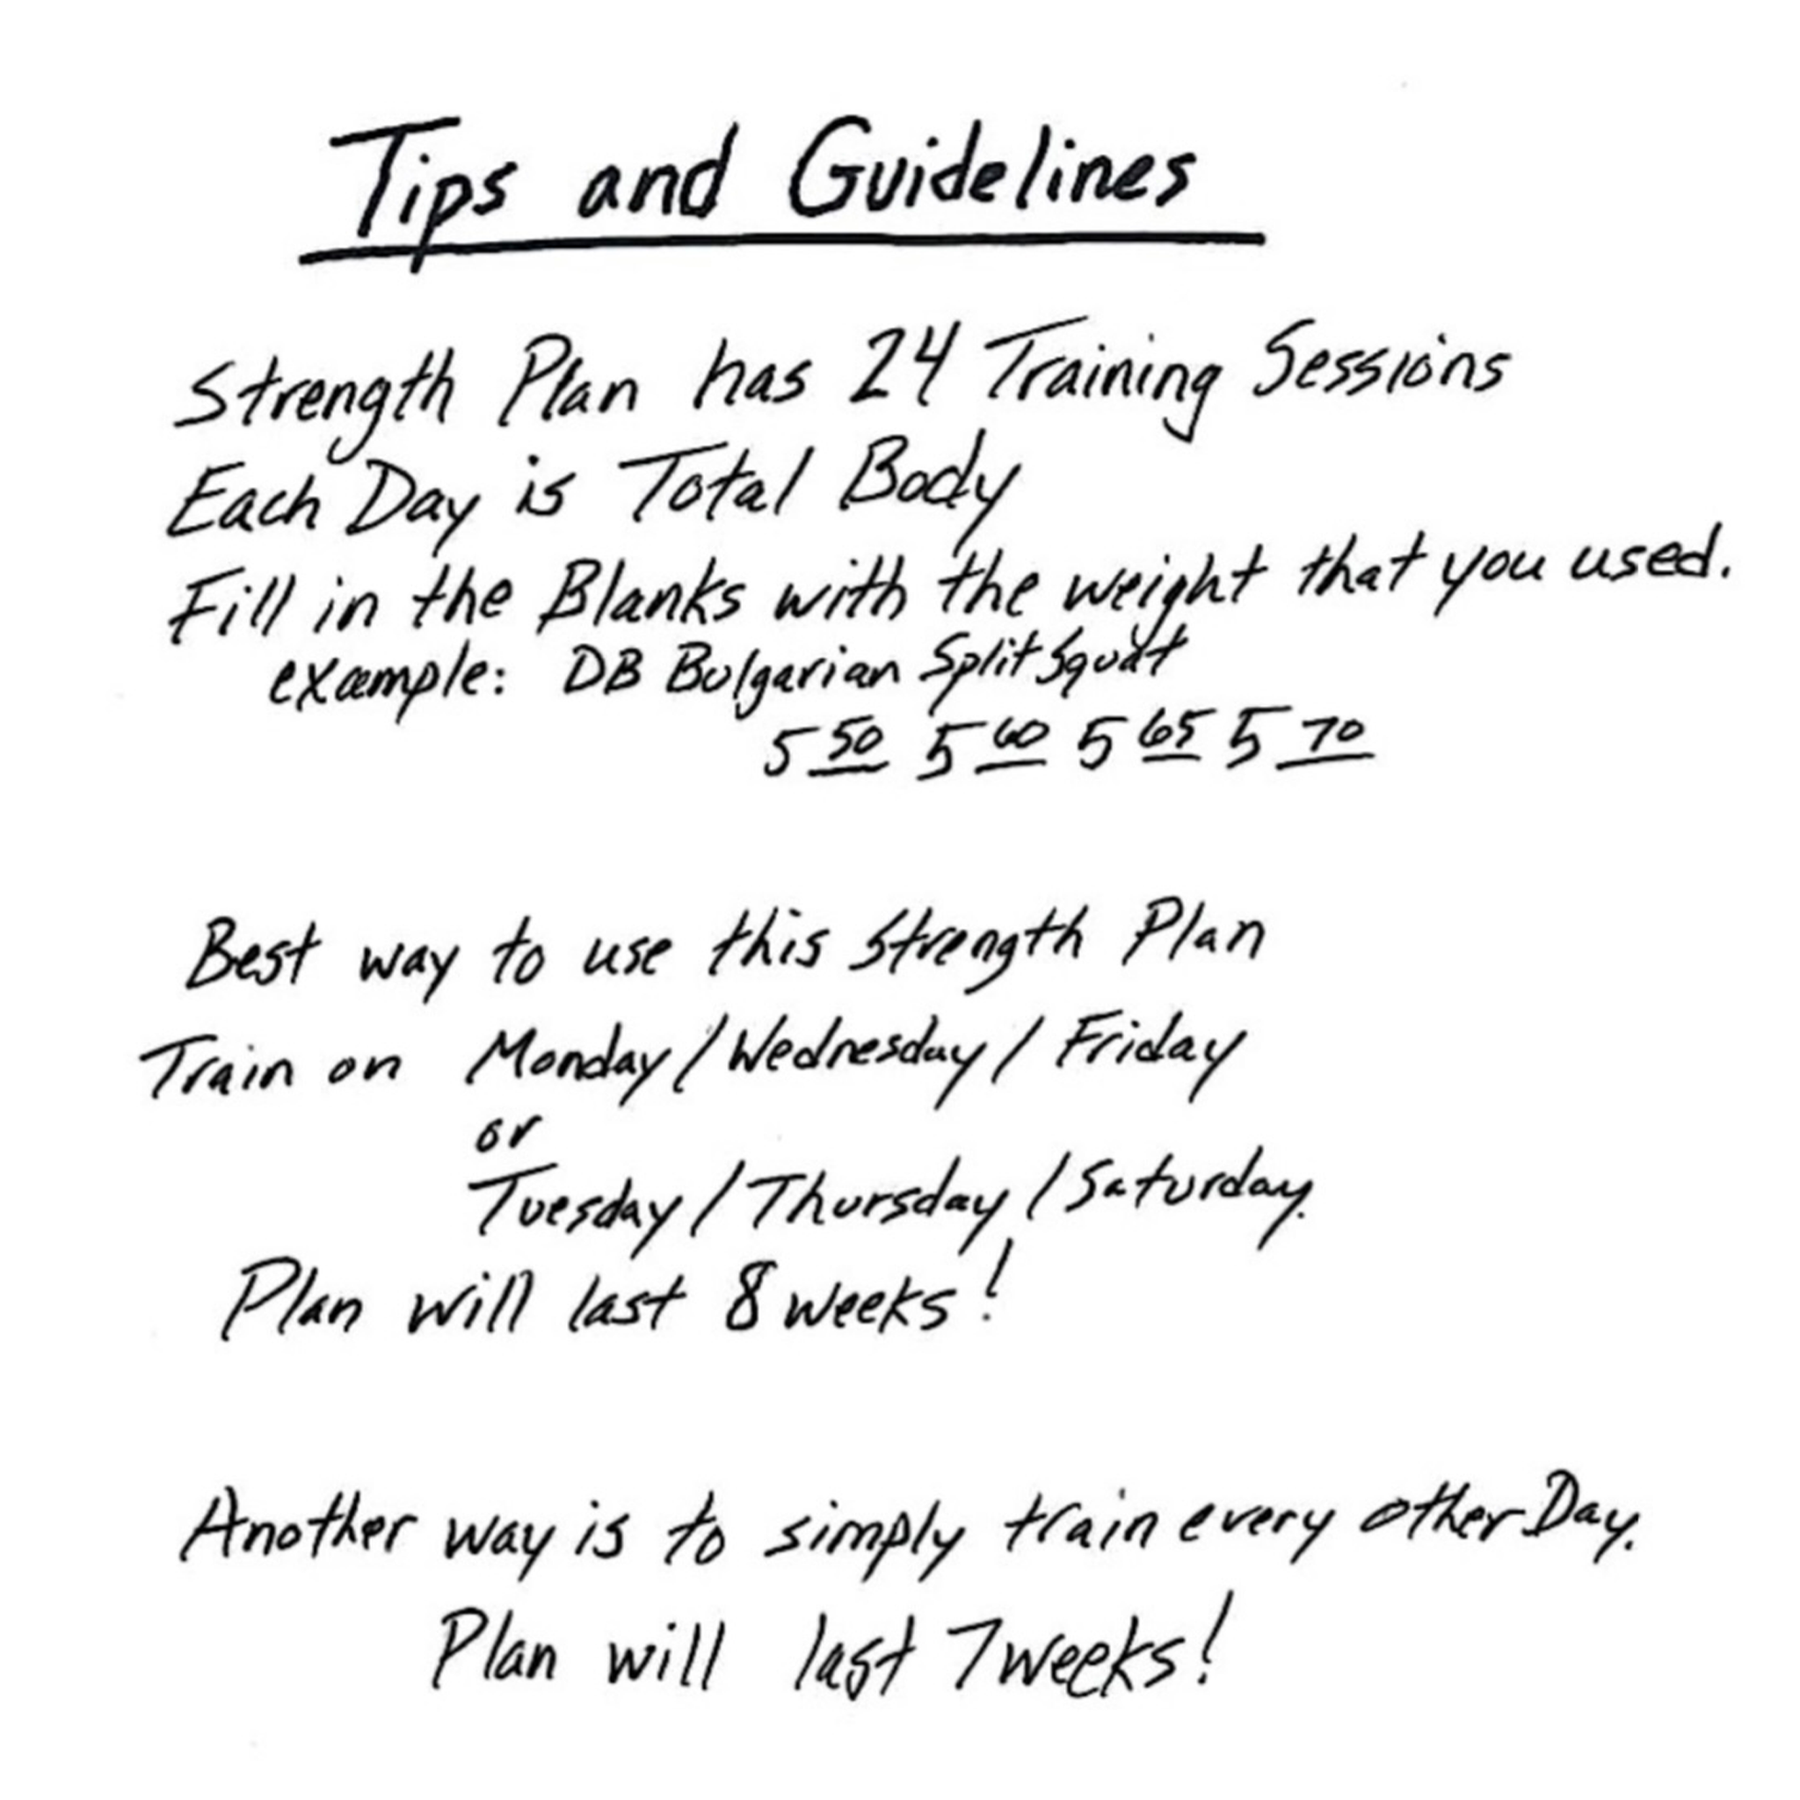 Tips and Guidelines
Strength Plan has 24 Training Sessions
Each Day is Total Body
Fill in the Blanks with the weight that you used.
example: DB Bulgarian Split Squat
5 50 5 60 5 65 5 70
Best way to use this Strength Plan
Train on Monday / Wednesday / Friday
or
Tuesday / Thursday / Saturday.
Plan will last 8 weeks!
Another way is to simply train every other Day.
Plan will last 7 weeks!